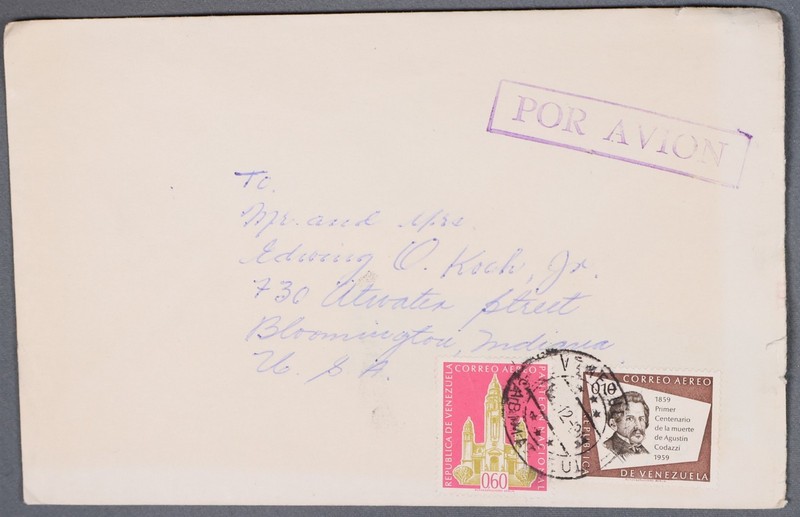 POR AVION
To.
Mr. and Mrs.
Edwing O. Koch, Jr.
730 Atwater Street
Bloomington, Indiana
U. S A.
CORREO AEREO
REPUBLICA DE VENEZUELA
0,60
CORREO AEREO
0,10
1859
Primer
Centenario
de la muerte
de Agustin
Codazzi
1959
REPUBLICA
DE VENEZUELA